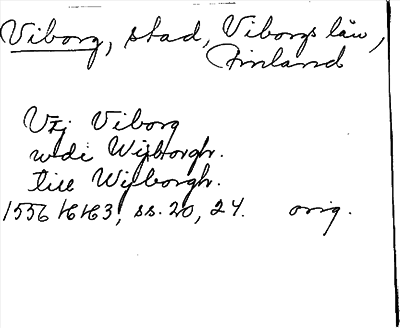 Viborg, stad, Viborgs län,
Finland
Vzj Viborg
wdi Wijborgh.
till Wijborgh.
1556 16163, ss. 20, 24. orig.